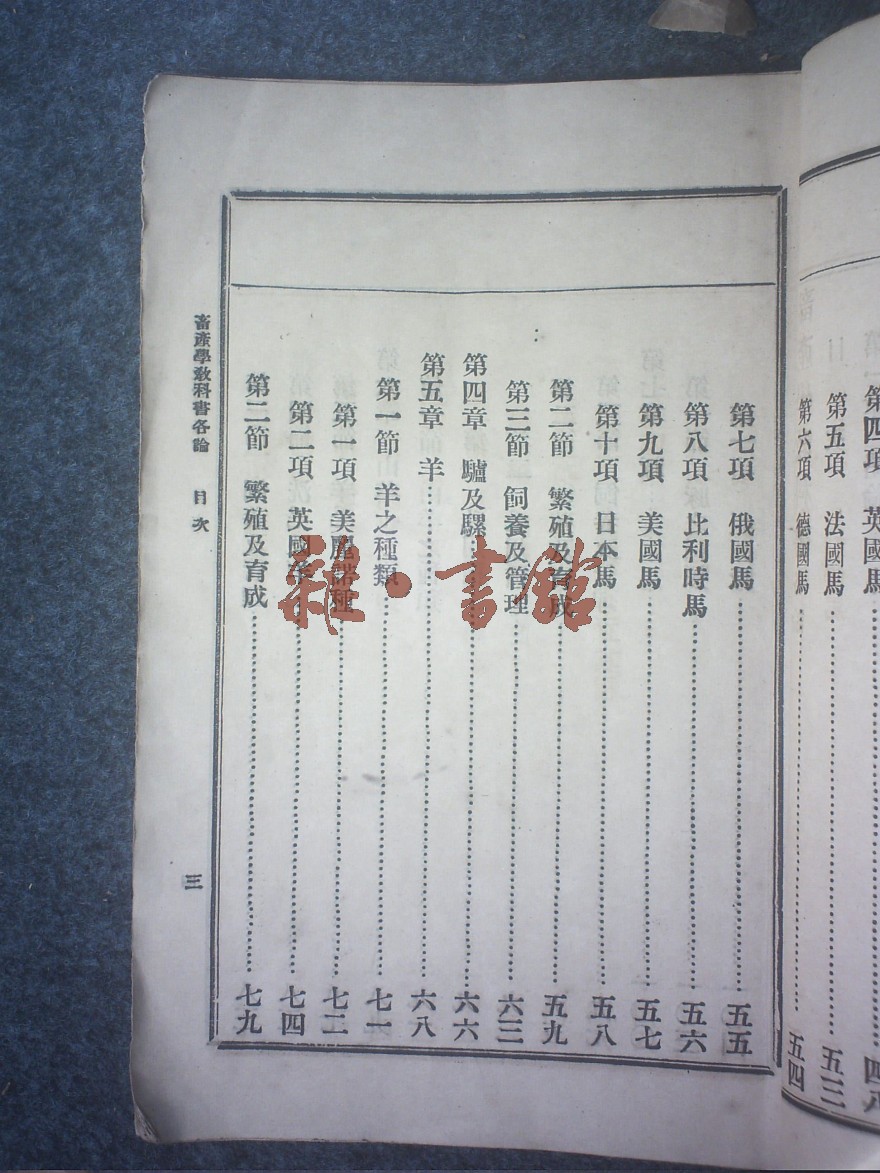 第四項 英國馬 四八
第五項 法國馬 五三
第六項 德國馬 五四
第七項 俄國馬 五五
第八項 比利時馬 五六
第九項 美國馬 五七
第十項 日本馬 五八
第二節 繁殖及育成 五九
第三節 飼養及管理 六三
第四章 驢及騾 六六
第五章 羊 六八
第一節 羊之種類 七一
第一項 美麗諾種 七二
第二項 英國羊 七四
第二節 繁殖及育成 七九
畜產學教科書各論 目次 三
雜·書館